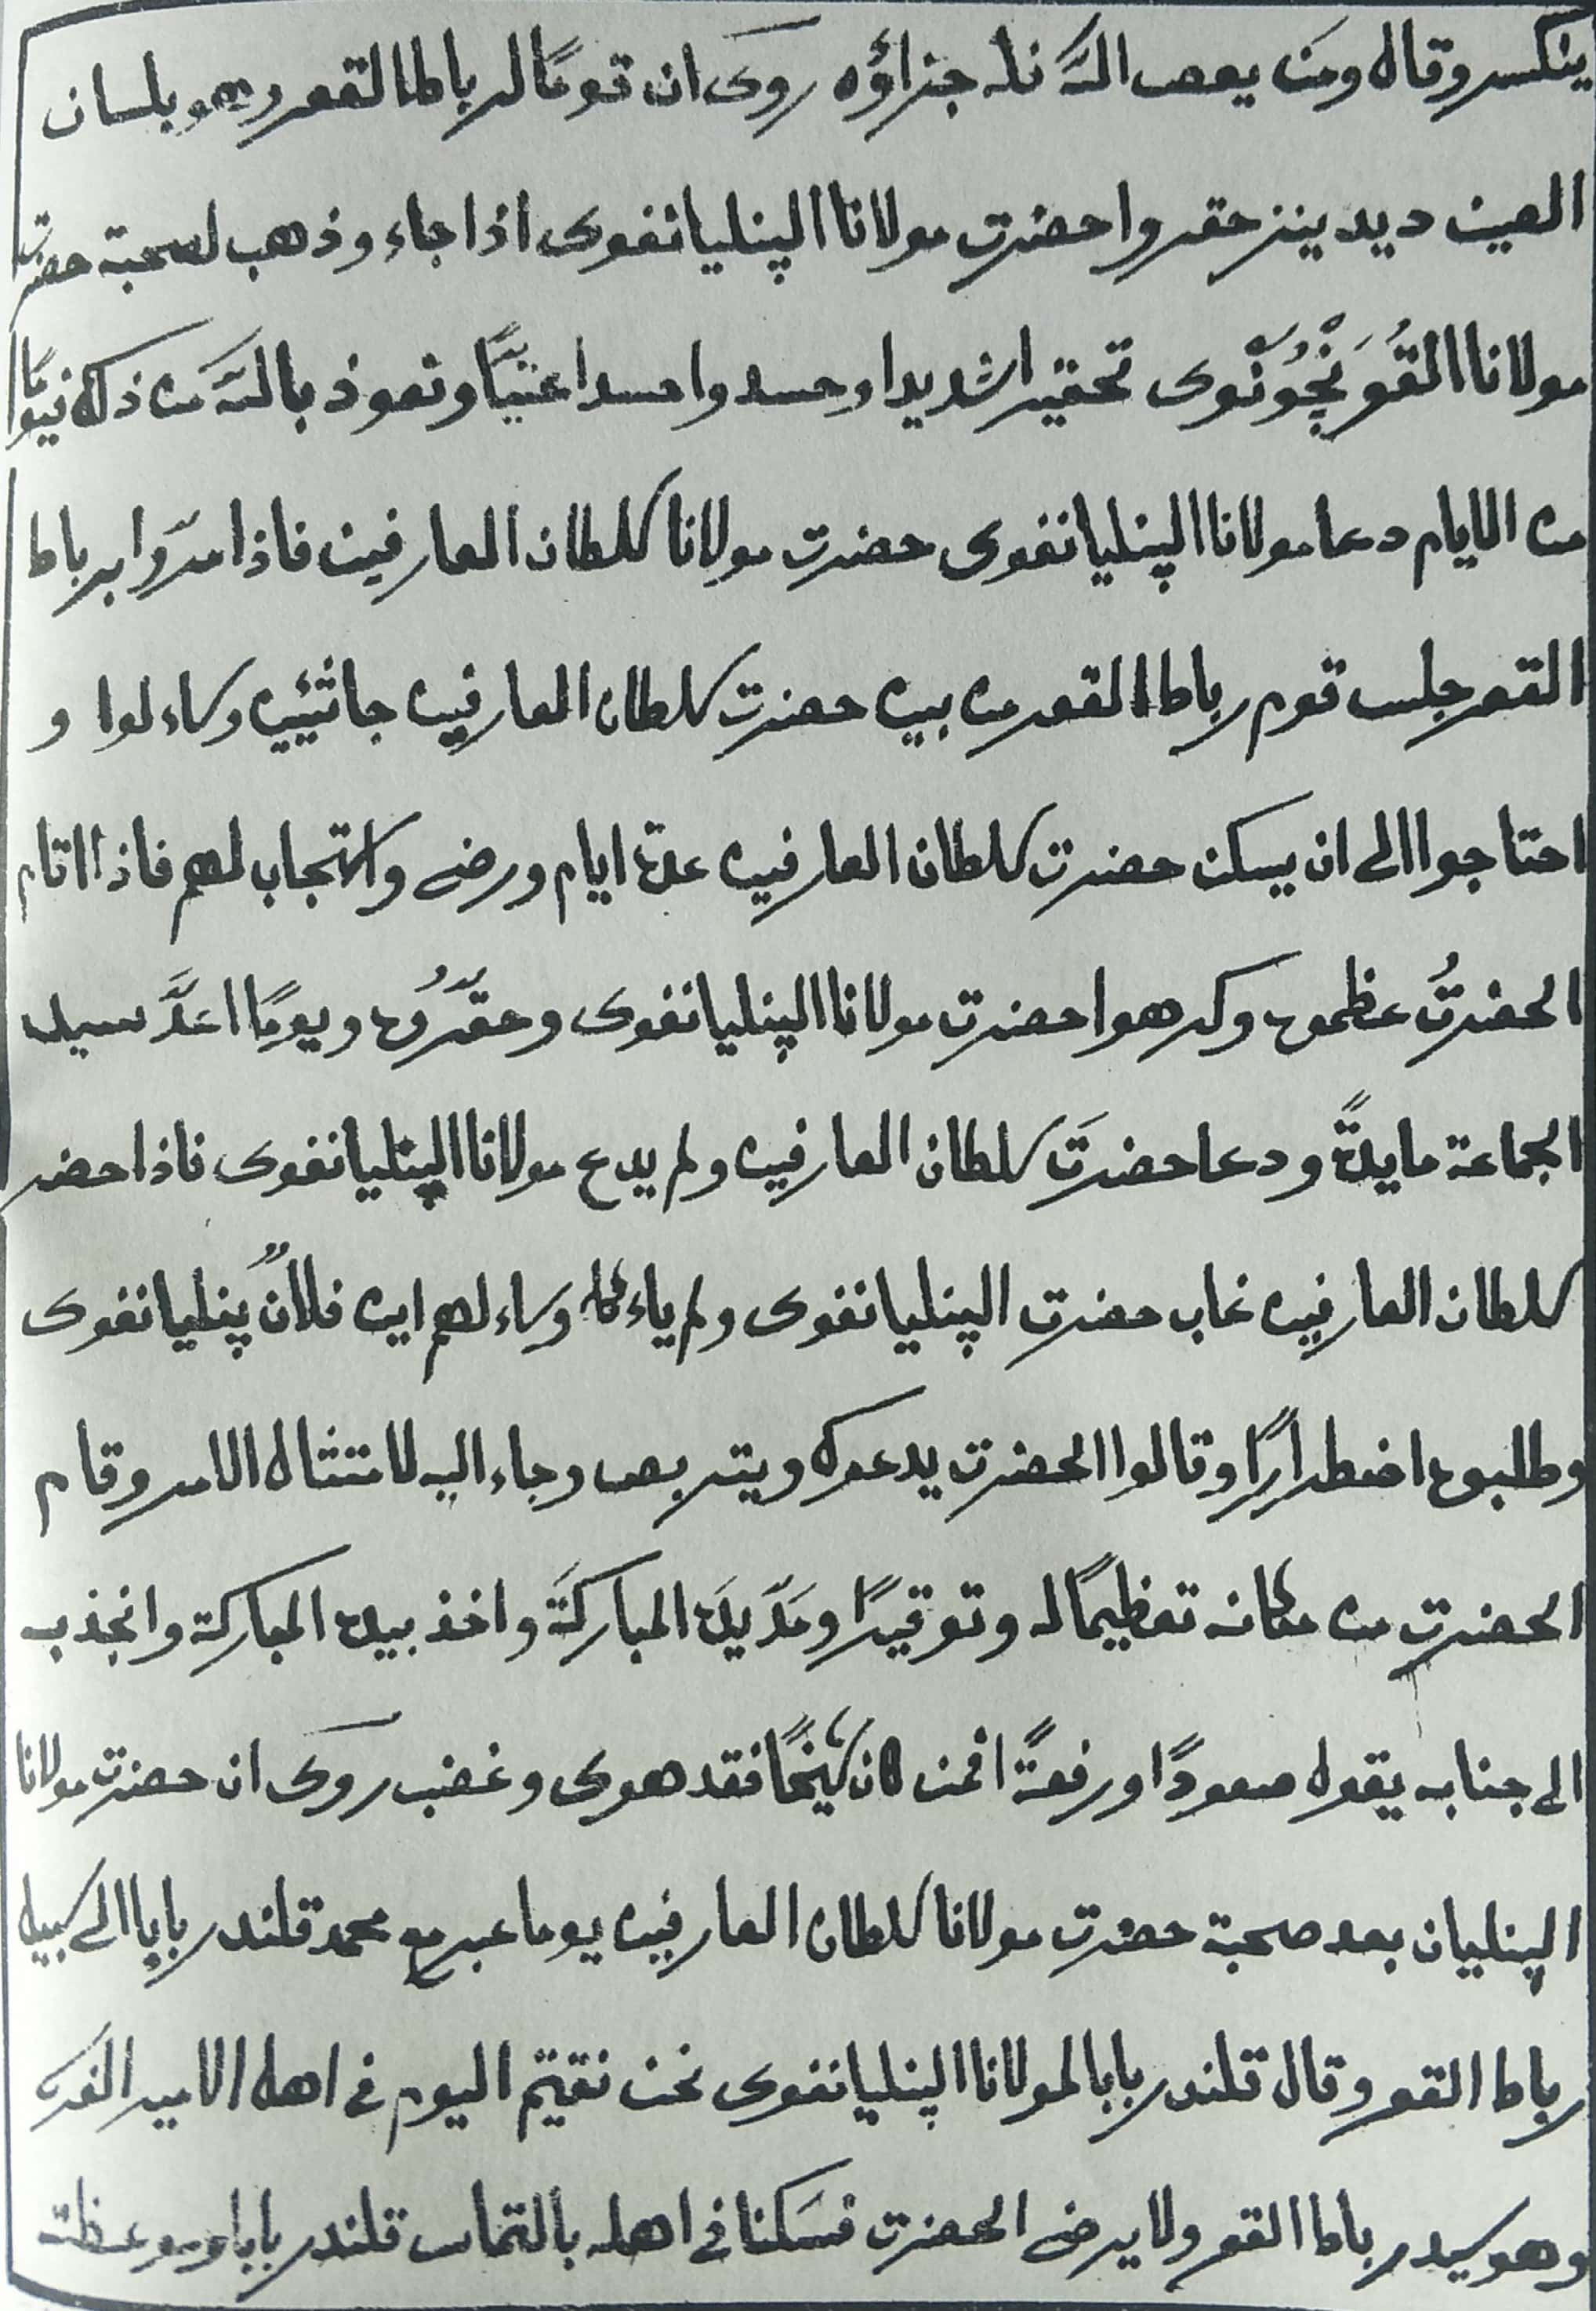 ينكسر وقال ومن يعص الله نله جزاؤه روى ان قومًا لرباط القعر وهو بلسان
الصين ديدينز حقروا حضرت مولانا الپنليانفوى اذا جاء وذهب لصحبة حضرت
مولانا القُوَنْجُونْوى تحقيرا شديدا وحسدوا حسدا عنيًّا ونعوذ بالله من ذلك فيومًا
من الايام دعا مولانا الپنليانفوى حضرت مولانا سلطان العارفين فاذا مرّوا برباط
القعر جلس قوم رباط القعر من بين حضرت سلطان العارفين جاثيين وساءلوا و
احتاجوا الى ان يسكن حضرت سلطان العارفين عدة ايام ورضى واستجاب لهم فاذا اقام
الحضرتُ عظموه وكرهوا حضرت مولانا الپنليانفوى وحقّرُوه ويومًا اعدَّ سيد
الجماعة مايدةً ودعا حضرتَ سلطان العارفين ولم يدع مولانا الپنليانفوى فاذا حضر
سلطان العارفين غاب حضرت الپنليانفوى ولم ياءكل وساءلهم اين فلانٌ پنليانفوى
وطلبوه اضطرارًا وقالوا الحضرت يدعوك ويتربص وجاء اليه لامتثال الامر وقام
الحضرت من مكانه تعظيمًا له وتوقيرًا ومَدّ يدَه المباركةَ واخذ بيده المباركة وانجذب
الى جنابه يقول صعودًا ورفعةً افمن كان شيخًا فقد هوى وغضب روى ان حضرت مولانا
الپنليان بعد صحبة حضرت مولانا سلطان العارفين يوما عبر مع محمد قلندر بابا الى سبيل
رباط القعر وقال قلندر بابا لمولانا الپنليانفوى نحن نقيم اليوم فى اهل الامير الفره
وهو سيد رباط القعر ولا يرضى الحضرت فسَكنا فى اهله بالتماس قلندر بابا وموعظته